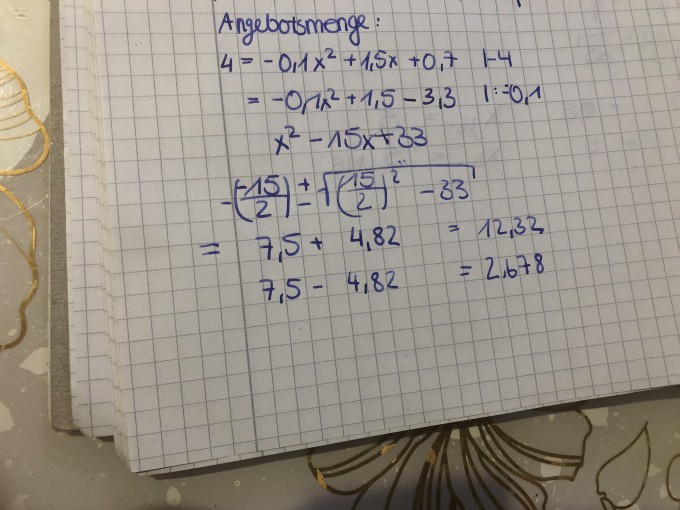 Angebotsmenge:
4 = -0,1x² + 1,5x + 0,7 |-4
= -0,1x² + 1,5 - 3,3 |:-0,1
x² - 15x + 33
-(-15/2) ± √((15/2)² - 33)
= 7,5 + 4,82 = 12,32
7,5 - 4,82 = 2,678